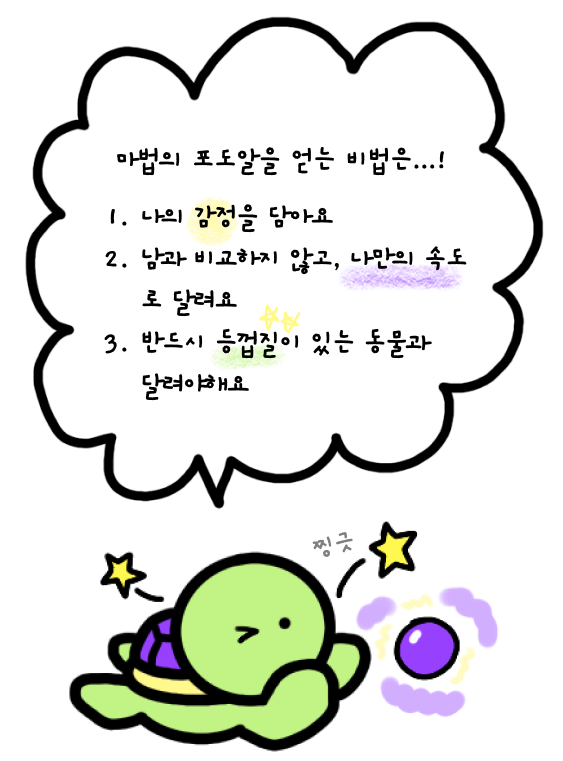 마법의 포도알을 얻는 비법은...!
1. 나의 감정을 담아요
2. 남과 비교하지 않고, 나만의 속도
로 달려요
3. 반드시 등껍질이 있는 동물과
달려야해요
찡긋